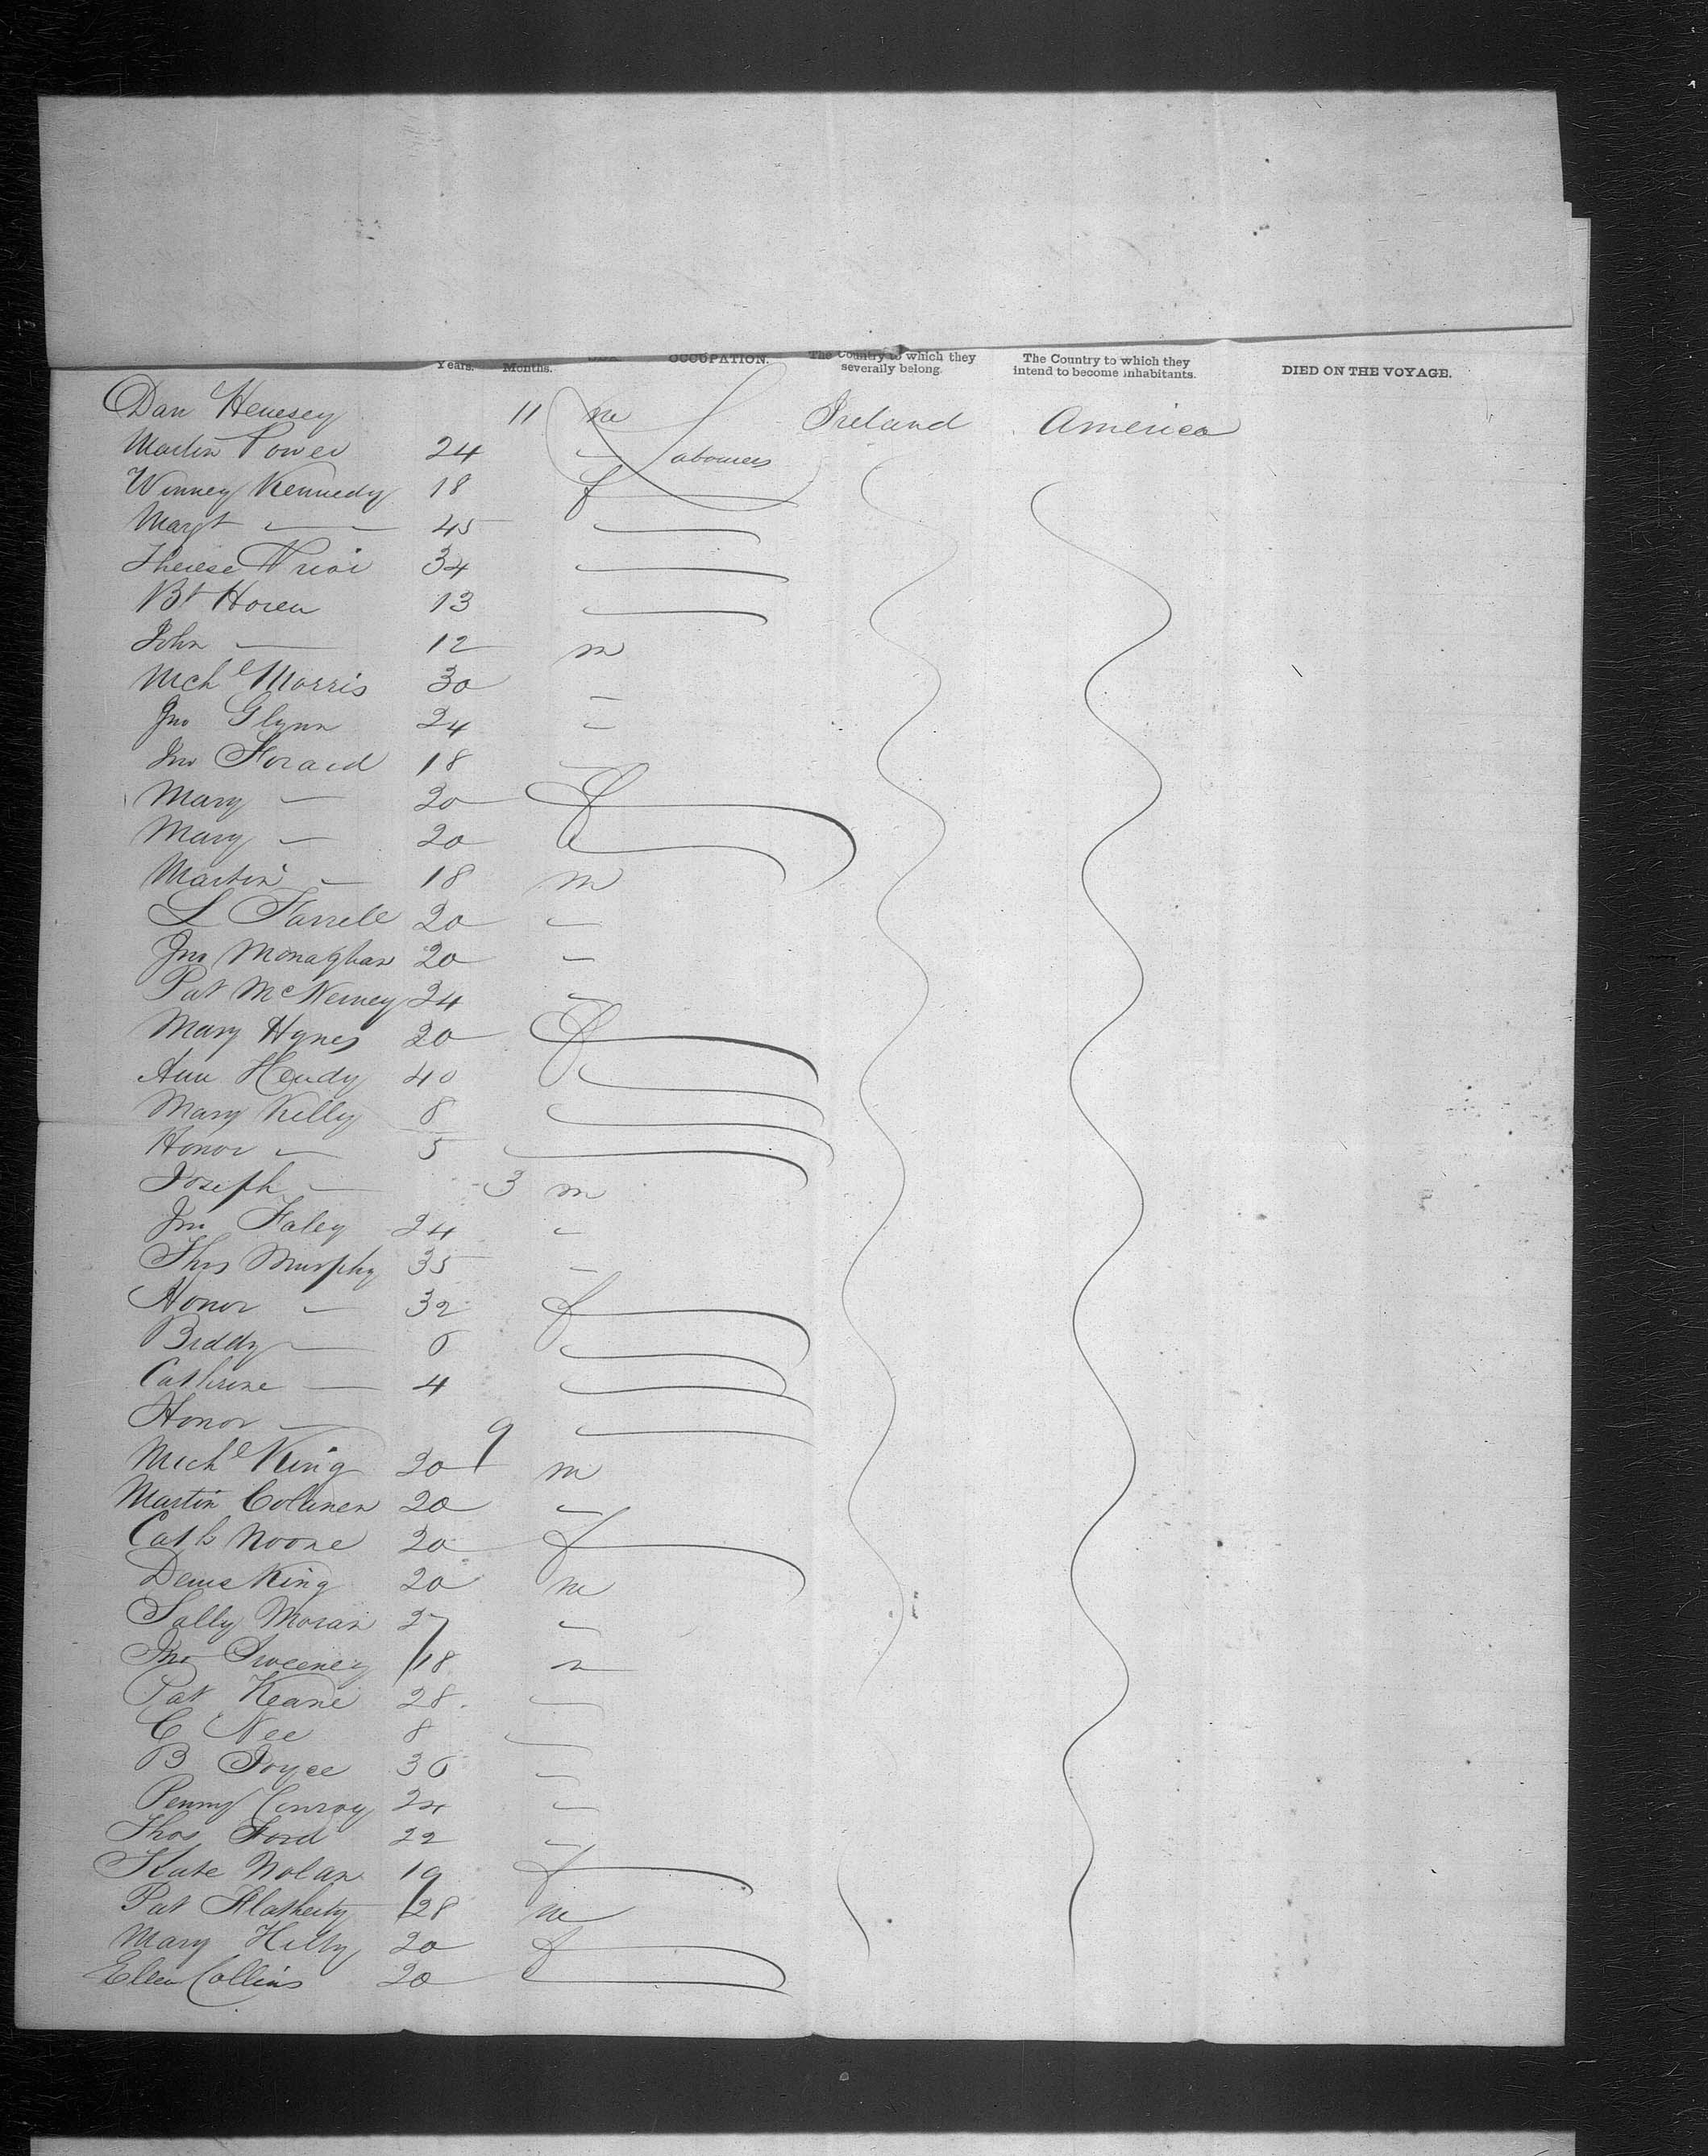 Years. Months. OCCUPATION. The Country to which they severally belong. The Country to which they intend to become inhabitants. DIED ON THE VOYAGE.
Dan Henesey 11 m Ireland America
Martin Power 24 — Labourers
Winney Kennedy 18 f
Margt — — 45
Therese 34
Bt Horen 13
John — 12 m
Mchl Morris 30 —
Jno Glynn 24 —
Jno Forard 18 —
Mary — 20 f
Mary — 20
Martin — 18 m
L Farrell 20 —
Jno Monaghan 20 —
Pat McNerney 24 —
Mary Hynes 20 f
Ann Hendy 40
Mary Kelly 8
Honor — 5
Joseph — 3 m
Jno Faley 24 —
Thos Murphy 35 —
Honor — 32 f
Biddy — 6
Cathrine — 4
Honor — 9
Michl King 20 m
Martin 20 —
Cath Noone 20 f
Denis King 20 m
Sally Moran 27 —
Jno Sweeney 18 —
Pat Keane 28. —
C Nee 8 —
B Joyce 36 —
Penny Conroy 24 —
Thos Ford 22 —
Kate Nolan 19 f
Pat Flatherty 28 m
Mary 20 f
Ellen Collins 20